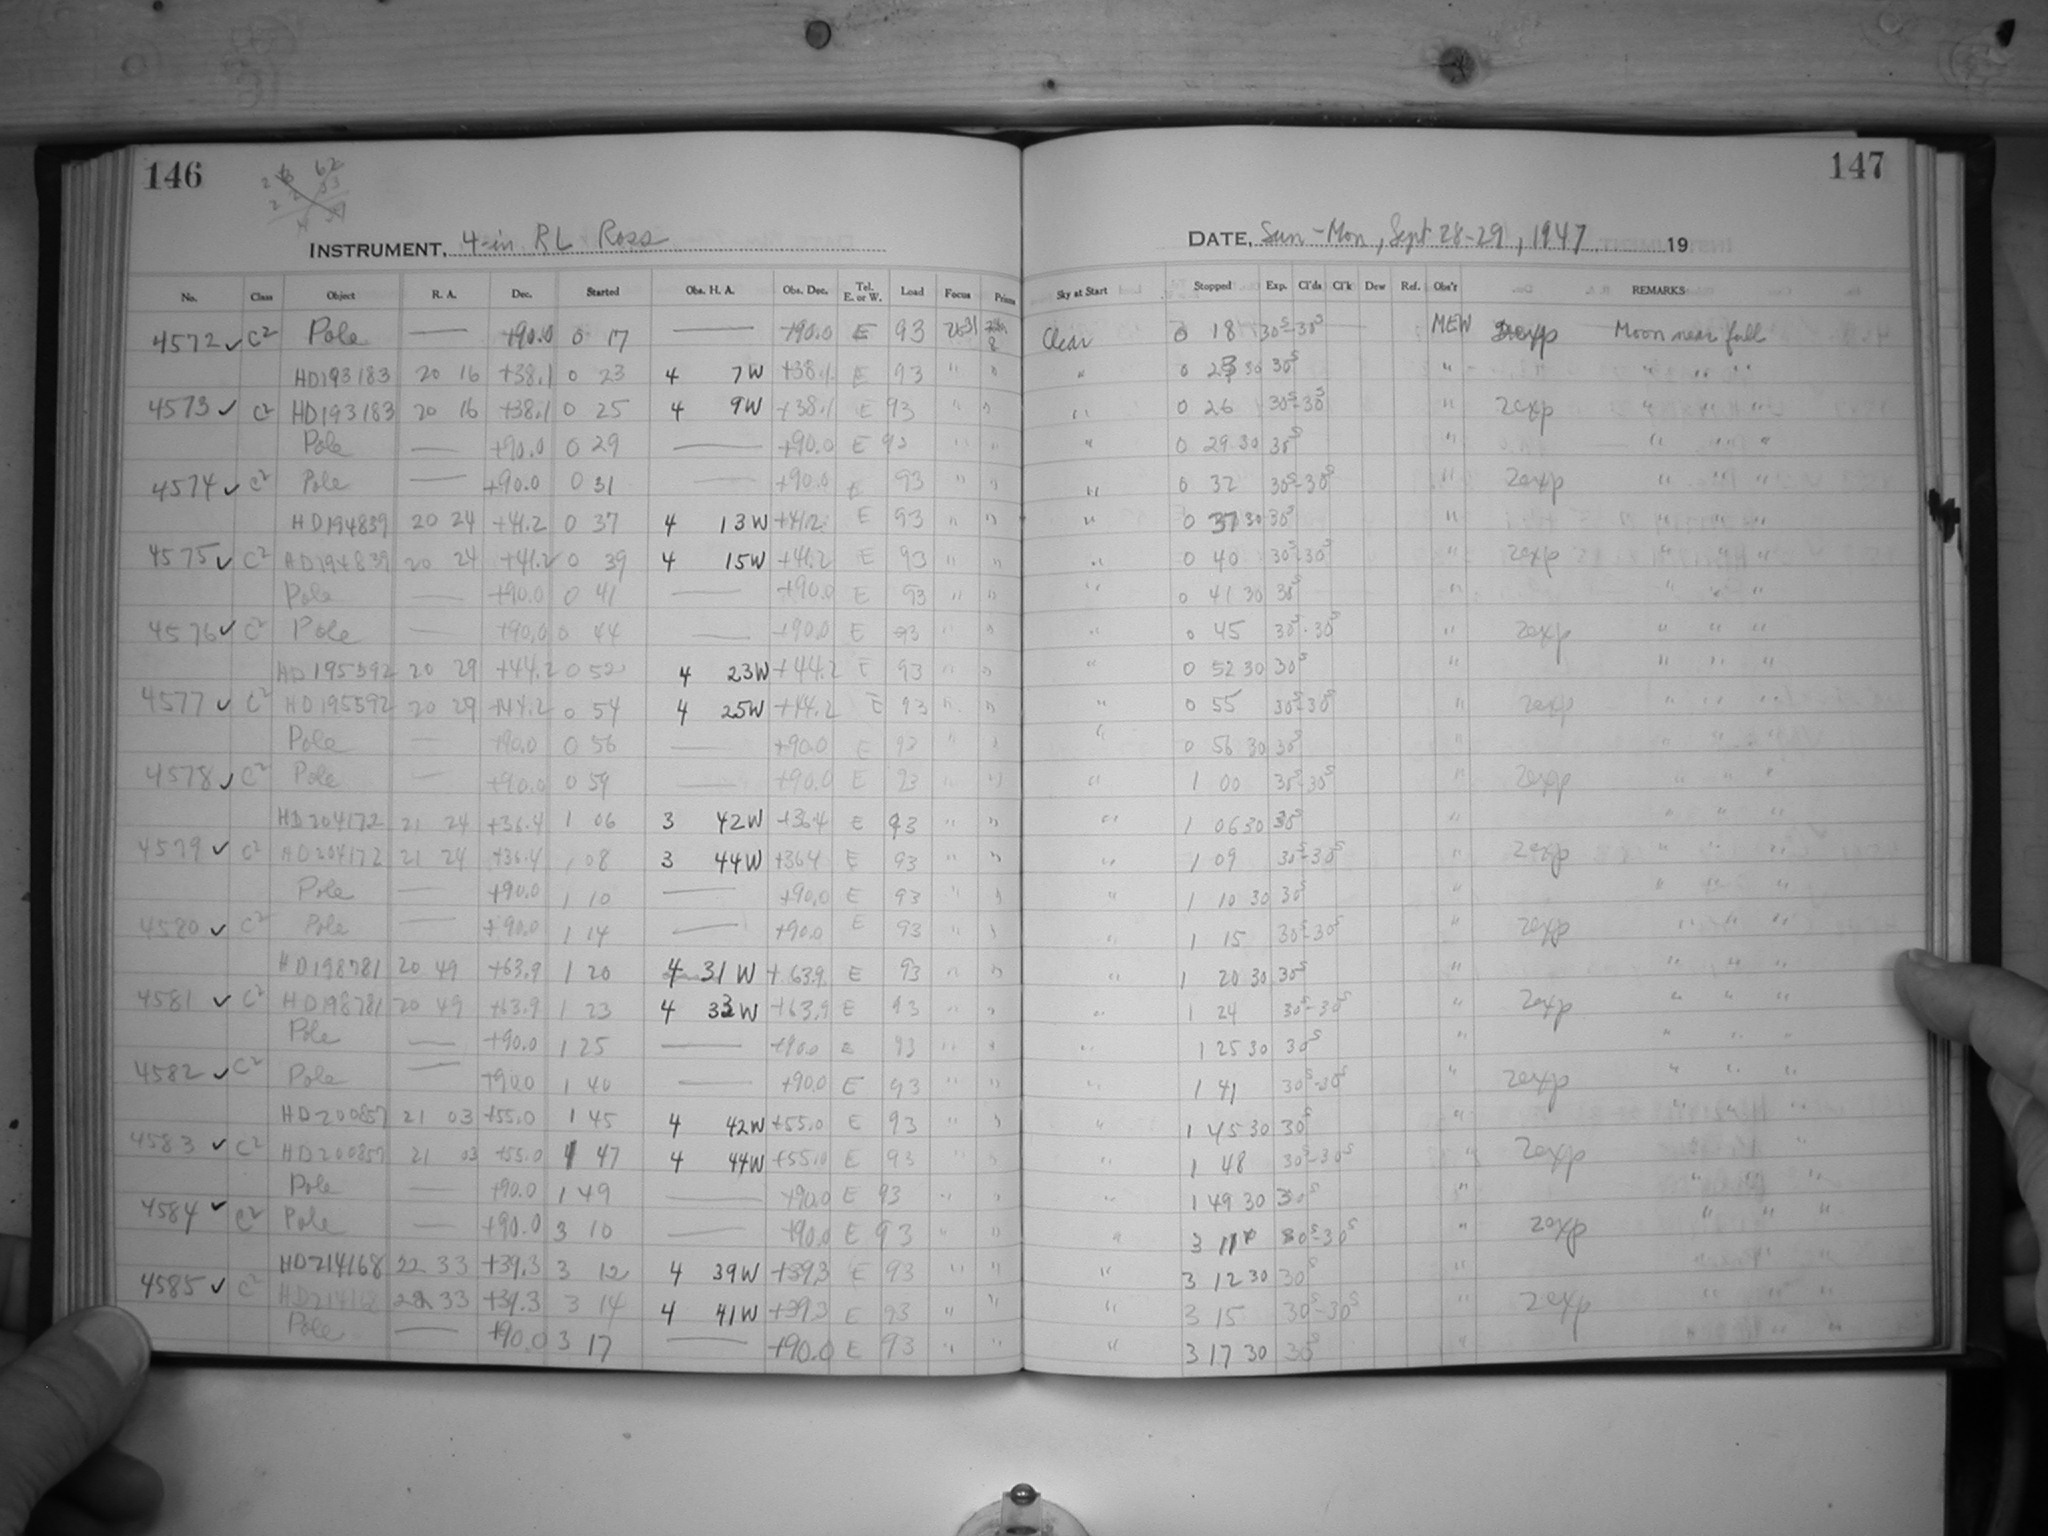 146
147
INSTRUMENT, 4-in RL Ross
DATE, Sun-Mon, Sept 28-29, 1947 19
No. Class Object R. A. Dec. Started Obs. H. A. Obs. Dec. Tel. E. or W. Load Focus Prism Sky at Start Stopped Exp. Cl'ds Cl'k Dew Ref. Obs'r REMARKS
4572 ✓ C2 Pole — +90.0 0 17 — +90.0 E 93 Clear 0 18 30s-30s MEW 2exp Moon near full
HD193183 20 16 +38.1 0 23 4 7W +38.1 E 93 " " " 0 23 30 30s " " " "
4573 ✓ C2 HD193183 20 16 +38.1 0 25 4 9W +38.1 E 93 " " " 0 26 30s-30s " 2exp " " "
Pole — +90.0 0 29 — +90.0 E 93 " " " 0 29 30 30s " " " "
4574 ✓ C2 Pole — +90.0 0 31 — +90.0 E 93 " " " 0 32 30s-30s " 2exp " " "
HD194839 20 24 +41.2 0 37 4 13W +41.2 E 93 " " " 0 37 30 30s " " " "
4575 ✓ C2 HD194839 20 24 +41.2 0 39 4 15W +41.2 E 93 " " " 0 40 30s-30s " 2exp " " "
Pole — +90.0 0 41 — +90.0 E 93 " " " 0 41 30 30s " " " "
4576 ✓ C2 Pole — +90.0 0 44 — +90.0 E 93 " " " 0 45 30s-30s " 2exp " " "
HD195592 20 29 +44.2 0 52 4 23W +44.2 E 93 " " " 0 52 30 30s " " " "
4577 ✓ C2 HD195592 20 29 +44.2 0 54 4 25W +44.2 E 93 " " " 0 55 30s-30s " 2exp " " "
Pole — +90.0 0 56 — +90.0 E 93 " " " 0 56 30 30s " " " "
4578 ✓ C2 Pole — +90.0 0 59 — +90.0 E 93 " " " 1 00 30s-30s " 2exp " " "
HD204172 21 24 +36.4 1 06 3 42W +36.4 E 93 " " " 1 06 30 30s " " " "
4579 ✓ C2 HD204172 21 24 +36.4 1 08 3 44W +36.4 E 93 " " " 1 09 30s-30s " 2exp " " "
Pole — +90.0 1 10 — +90.0 E 93 " " " 1 10 30 30s " " " "
4580 ✓ C2 Pole — +90.0 1 14 — +90.0 E 93 " " " 1 15 30s-30s " 2exp " " "
HD198781 20 49 +63.9 1 20 4 31W +63.9 E 93 " " " 1 20 30 30s " " " "
4581 ✓ C2 HD198781 20 49 +63.9 1 23 4 33W +63.9 E 93 " " " 1 24 30s-30s " 2exp " " "
Pole — +90.0 1 25 — +90.0 E 93 " " " 1 25 30 30s " " " "
4582 ✓ C2 Pole — +90.0 1 40 — +90.0 E 93 " " " 1 41 30s-30s " 2exp " " "
HD200857 21 03 +55.0 1 45 4 42W +55.0 E 93 " " " 1 45 30 30s " " " "
4583 ✓ C2 HD200857 21 03 +55.0 1 47 4 44W +55.0 E 93 " " " 1 48 30s-30s " 2exp "
Pole — +90.0 1 49 — +90.0 E 93 " " " 1 49 30 30s " " " "
4584 ✓ C2 Pole — +90.0 3 10 — +90.0 E 93 " " " 3 11 30s-30s " 2exp " " "
HD214168 22 33 +39.3 3 12 4 39W +39.3 E 93 " " " 3 12 30 30s " " "
4585 ✓ C2 HD214168 22 33 +39.3 3 14 4 41W +39.3 E 93 " " " 3 15 30s-30s " 2exp " " "
Pole — +90.0 3 17 — +90.0 E 93 " " " 3 17 30 30s " " " "